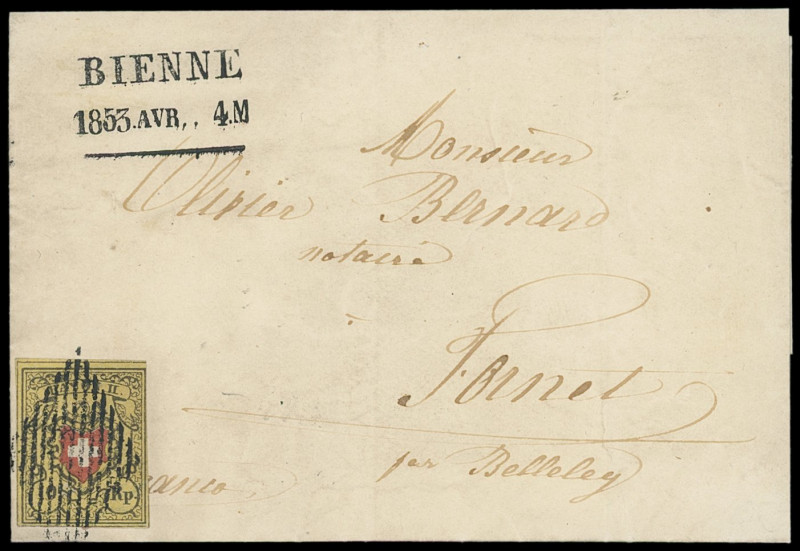 BIENNE
1853.AVR,. 4.M
Monsieur
Olivier Bernard
notaire
à
Fornet
par Bellelay
franco,
II
10 Rp.